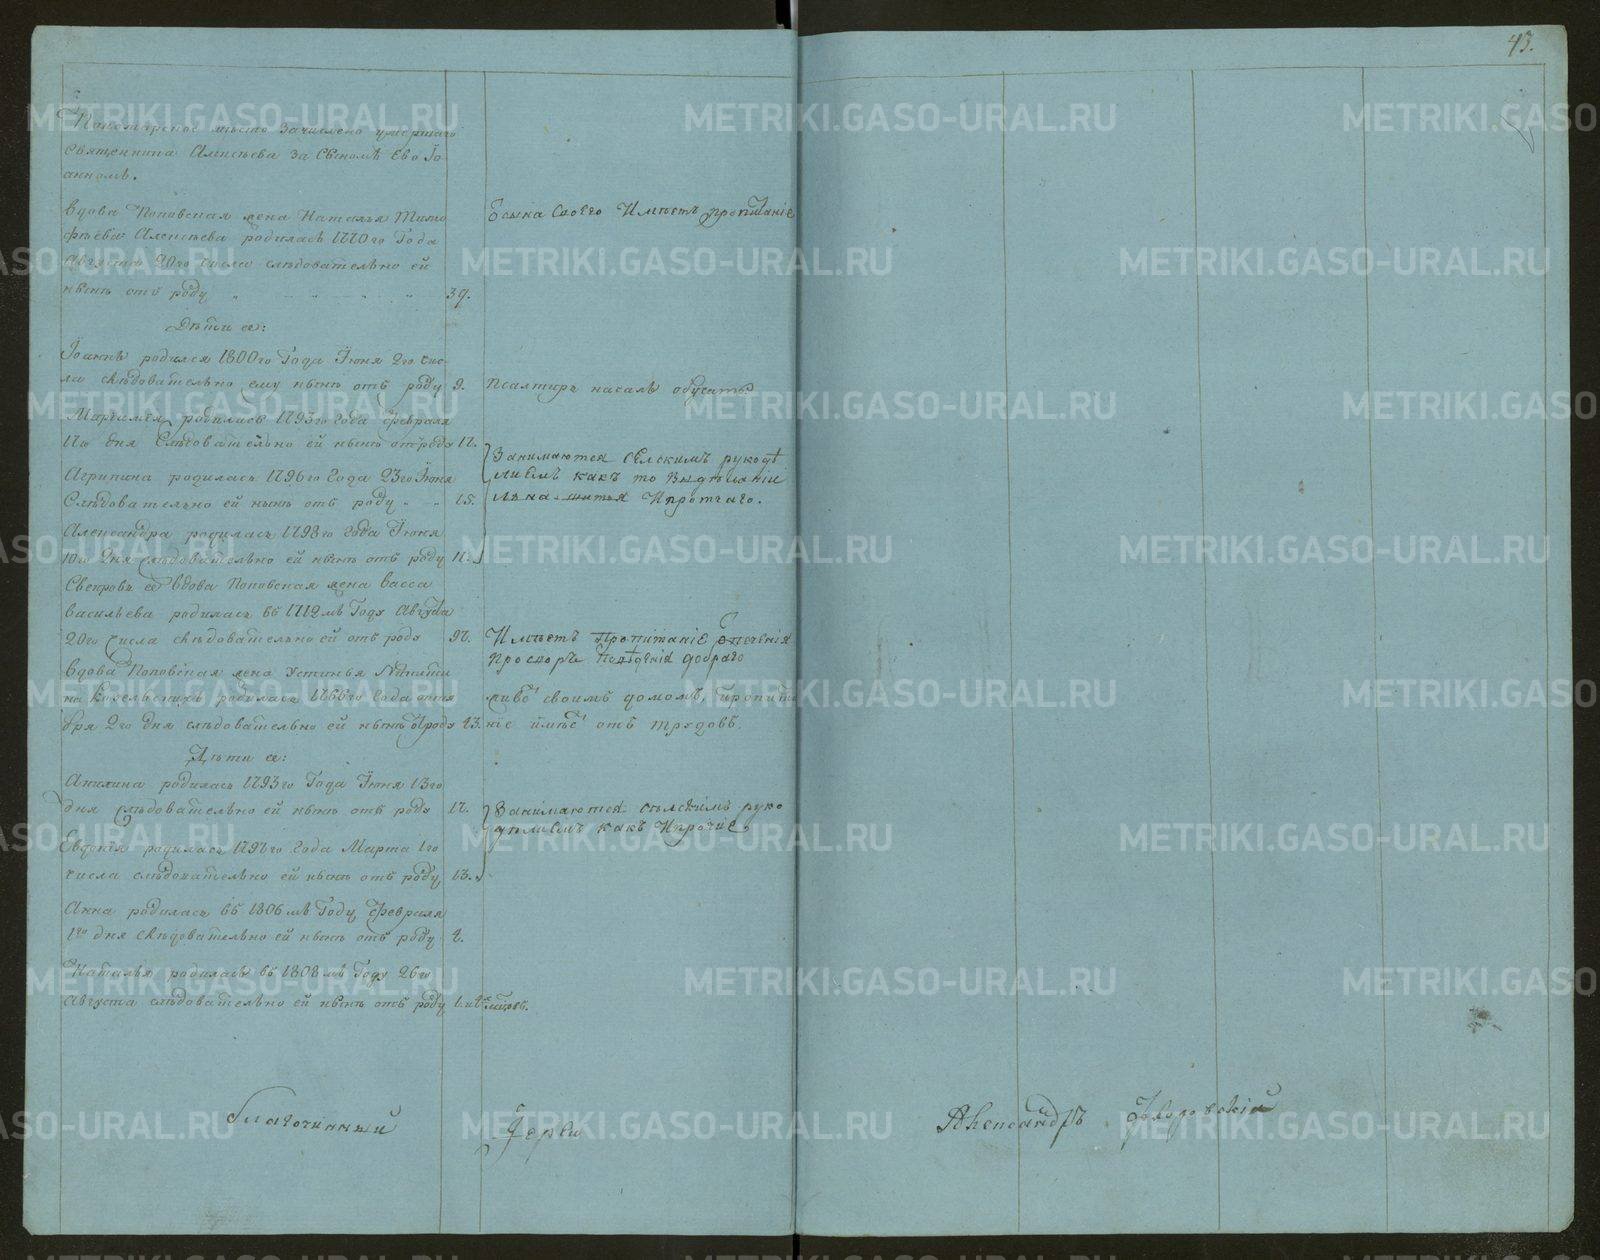 43.
Пономарское мѣсто зачислено умершаго
священника Алексѣева за сыномъ ево Іо-
анномъ.
вдова Поповская жена Наталья Тимо
фѣева Алексѣева родилась 1770го Года
Августа 20го числа слѣдовательно ей
нынѣ отъ роду 39.
Ѿ сына своего Имѣетъ пропитаніе
Дѣти ее:
Іоаннъ родился 1800го Года Іюня 2го чис-
ла слѣдовательно ему нынѣ отъ роду 9. Псалтирь началъ обучать
родилась 1793го года февраля
17го дня Слѣдовательно ей нынѣ отъ роду 17.
Агрипина родилась 1796го Года 23го Іюня
Слѣдовательно ей нынѣ отъ роду 15.
Занимаются сѣлскимъ рукодѣ
лиемъ какъ то
льна шитья Ипротчаго.
Александра родилась 1798го Года Іюня
10го Дня слѣдовательно ей нынѣ отъ роду 11.
Свекровь ее вдова Поповская жена васса
васильева родилась въ 1712мъ Году Августа
20го числа слѣдовательно ей отъ роду 97. Имѣетъ Пропитаніе
вдова Поповская жена Устинья Никити
на родилась 1766го Года
бря 2го дня слѣдовательно ей нынѣ Ѿроду 43.
своимъ домомъ, пропита
ніе имѣе отъ трудовъ.
Дѣти ее:
Акилина родилась 1793го Года Іюня 13го
дня слѣдовательно ей нынѣ отъ роду 17.
Занимаются сѣлскимъ руко
дѣлиемъ какъ Ипрочие
Евдокія родилась 1797го Года Марта 1го
числа слѣдовательно ей нынѣ отъ роду 13.
Анна родилась въ 1806мъ Году февраля
1го дня слѣдовательно ей нынѣ отъ роду 4.
Наталья родилась въ 1808мъ Году 26го
Августа слѣдовательно ей нынѣ отъ роду 1.
Благочинный Іерей Александръ Флоровскій
METRIKI.GASO-URAL.RU